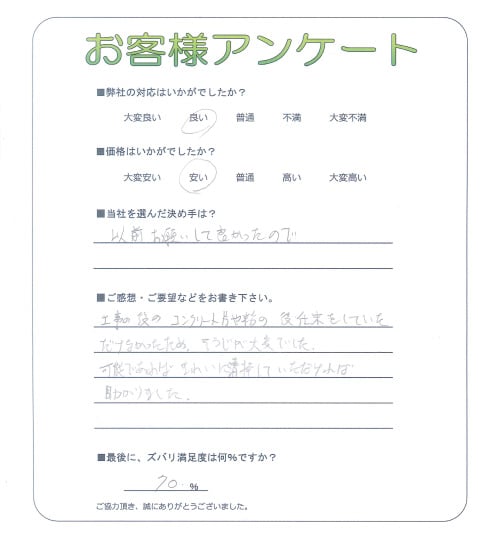 お客様アンケート
■弊社の対応はいかがでしたか?
大変良い 良い 普通 不満 大変不満
■価格はいかがでしたか?
大変安い 安い 普通 高い 大変高い
■当社を選んだ決め手は?
以前お願いして良かったので
■ご感想・ご要望などをお書き下さい。
工事の後のコンクリート片や粉の後仕末をしていた
だけなかったため、そうじが大変でした。
可能であればきれいに していただければ
助かりました。
■最後に、ズバリ満足度は何%ですか?
70 %
ご協力頂き、誠にありがとうございました。